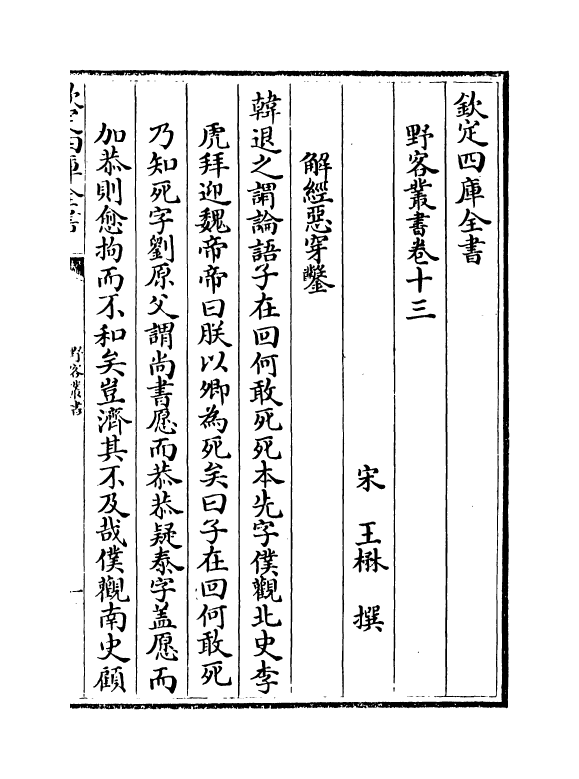 欽定四庫全書
野客叢書卷十三
宋 王楙 撰
解經惡穿鑿
韓退之謂論語子在回何敢死死本先字僕觀北史李
虎拜迎魏帝帝曰朕以卿為死矣曰子在回何敢死
乃知死字劉原父謂尚書愿而恭恭疑泰字盖愿而
加恭則愈拘而不和矣豈濟其不及哉僕觀南史顧
欽定四庫全書
野客叢書
一